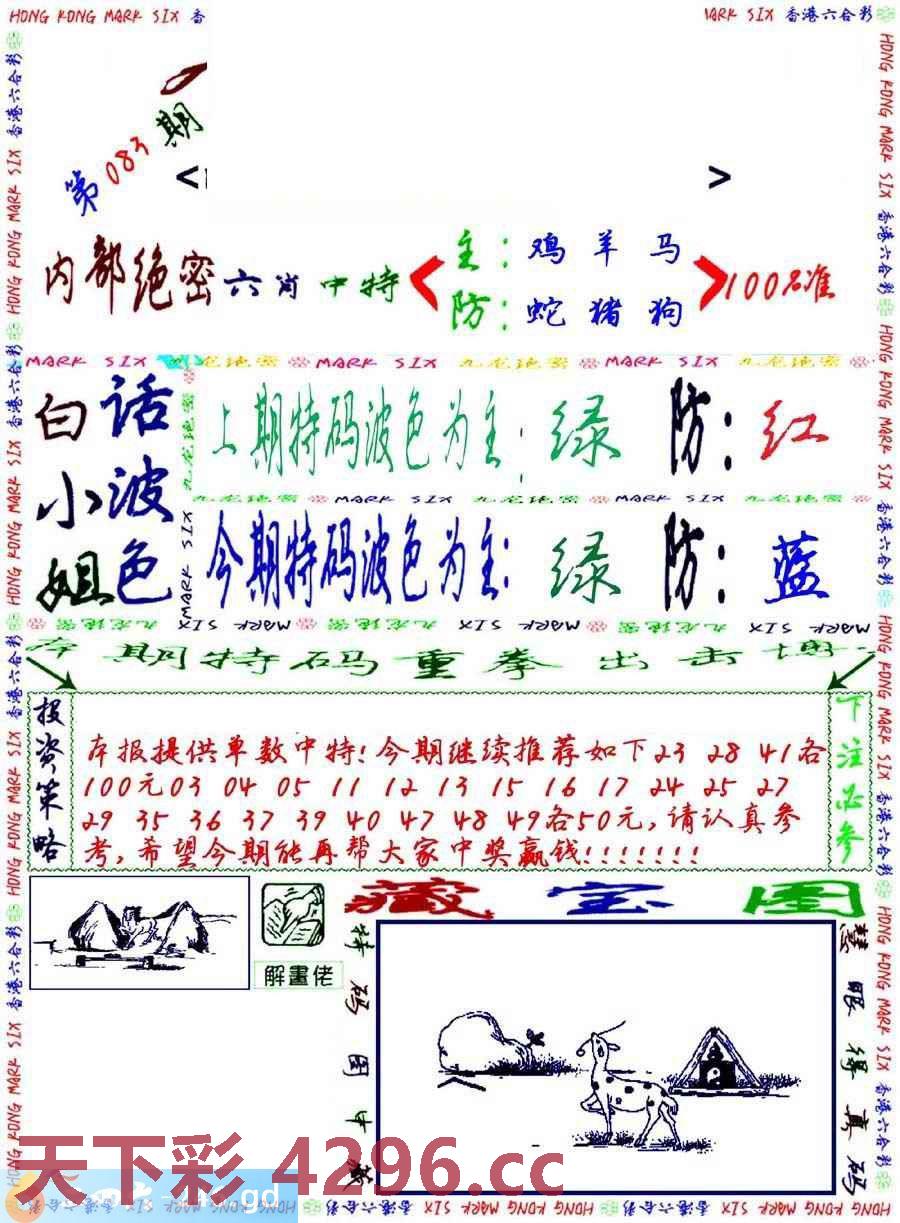 HONG KONG MARK SIX 香
MARK SIX 香港六合彩
第083期
< >
内部绝密六肖中特
主：鸡羊马
防：蛇猪狗
100%准
MARK SIX 九龙绝密 MARK SIX 九龙绝密 MARK SIX 九龙绝密
白小姐
话波色
上期特码波色为主：绿 防：红
九龙绝密 MARK SIX 九龙绝密 MARK SIX 九龙绝密
今期特码波色为主：绿 防：蓝
九龙绝密 MARK SIX 九龙绝密 MARK SIX 九龙绝密 MARK SIX
本期特码重拳出击
投资策略
本报提供单数中特！今期继续推荐如下23 28 41各
100元03 04 05 11 12 13 15 16 17 24 25 27
29 35 36 37 39 40 47 48 49各50元，请认真参
考，希望今期能再帮大家中奖赢钱！！！！！！！
下注必参
藏宝图
解畫佬
特码图中藏
慧眼得真码
天下彩4296.cc
gd
HONG KONG MARK SIX 香港六合彩 HONG KONG MARK SIX 香港六合彩